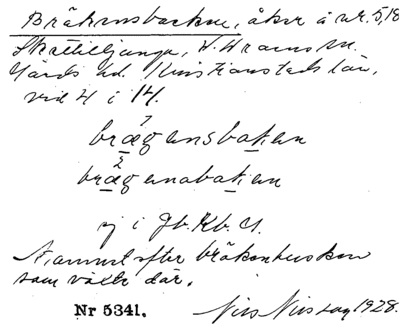 Bräkensbacken, åker å nr. 5, 18
Skättilljunga, V. Vrams sn.
Gärds hd. Kristianstads län.
vid 4 i 14.
brægensbaken
brægenabaken
ej i Jb. Kb. U.
Namnet efter bräkenbusken
som växte där.
Nr 5341.
Nils Nilsson 1928.